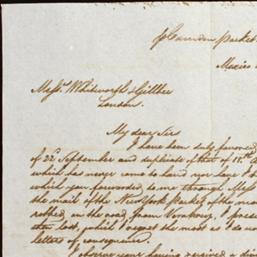 p Camden Packet
Mexico
Messrs. Whitworth & Gillbee
London.
My dear Sirs
I have been duly favored
of 22 September and duplicate of that of 18th
which has never come to hand nor have I
which you forwarded to me through Messrs
the mail of the New York Packet of the
robbed on the road from Veracruz, I
also lost, which I regret the most as I do
letters of consequence.
I observe your having received a